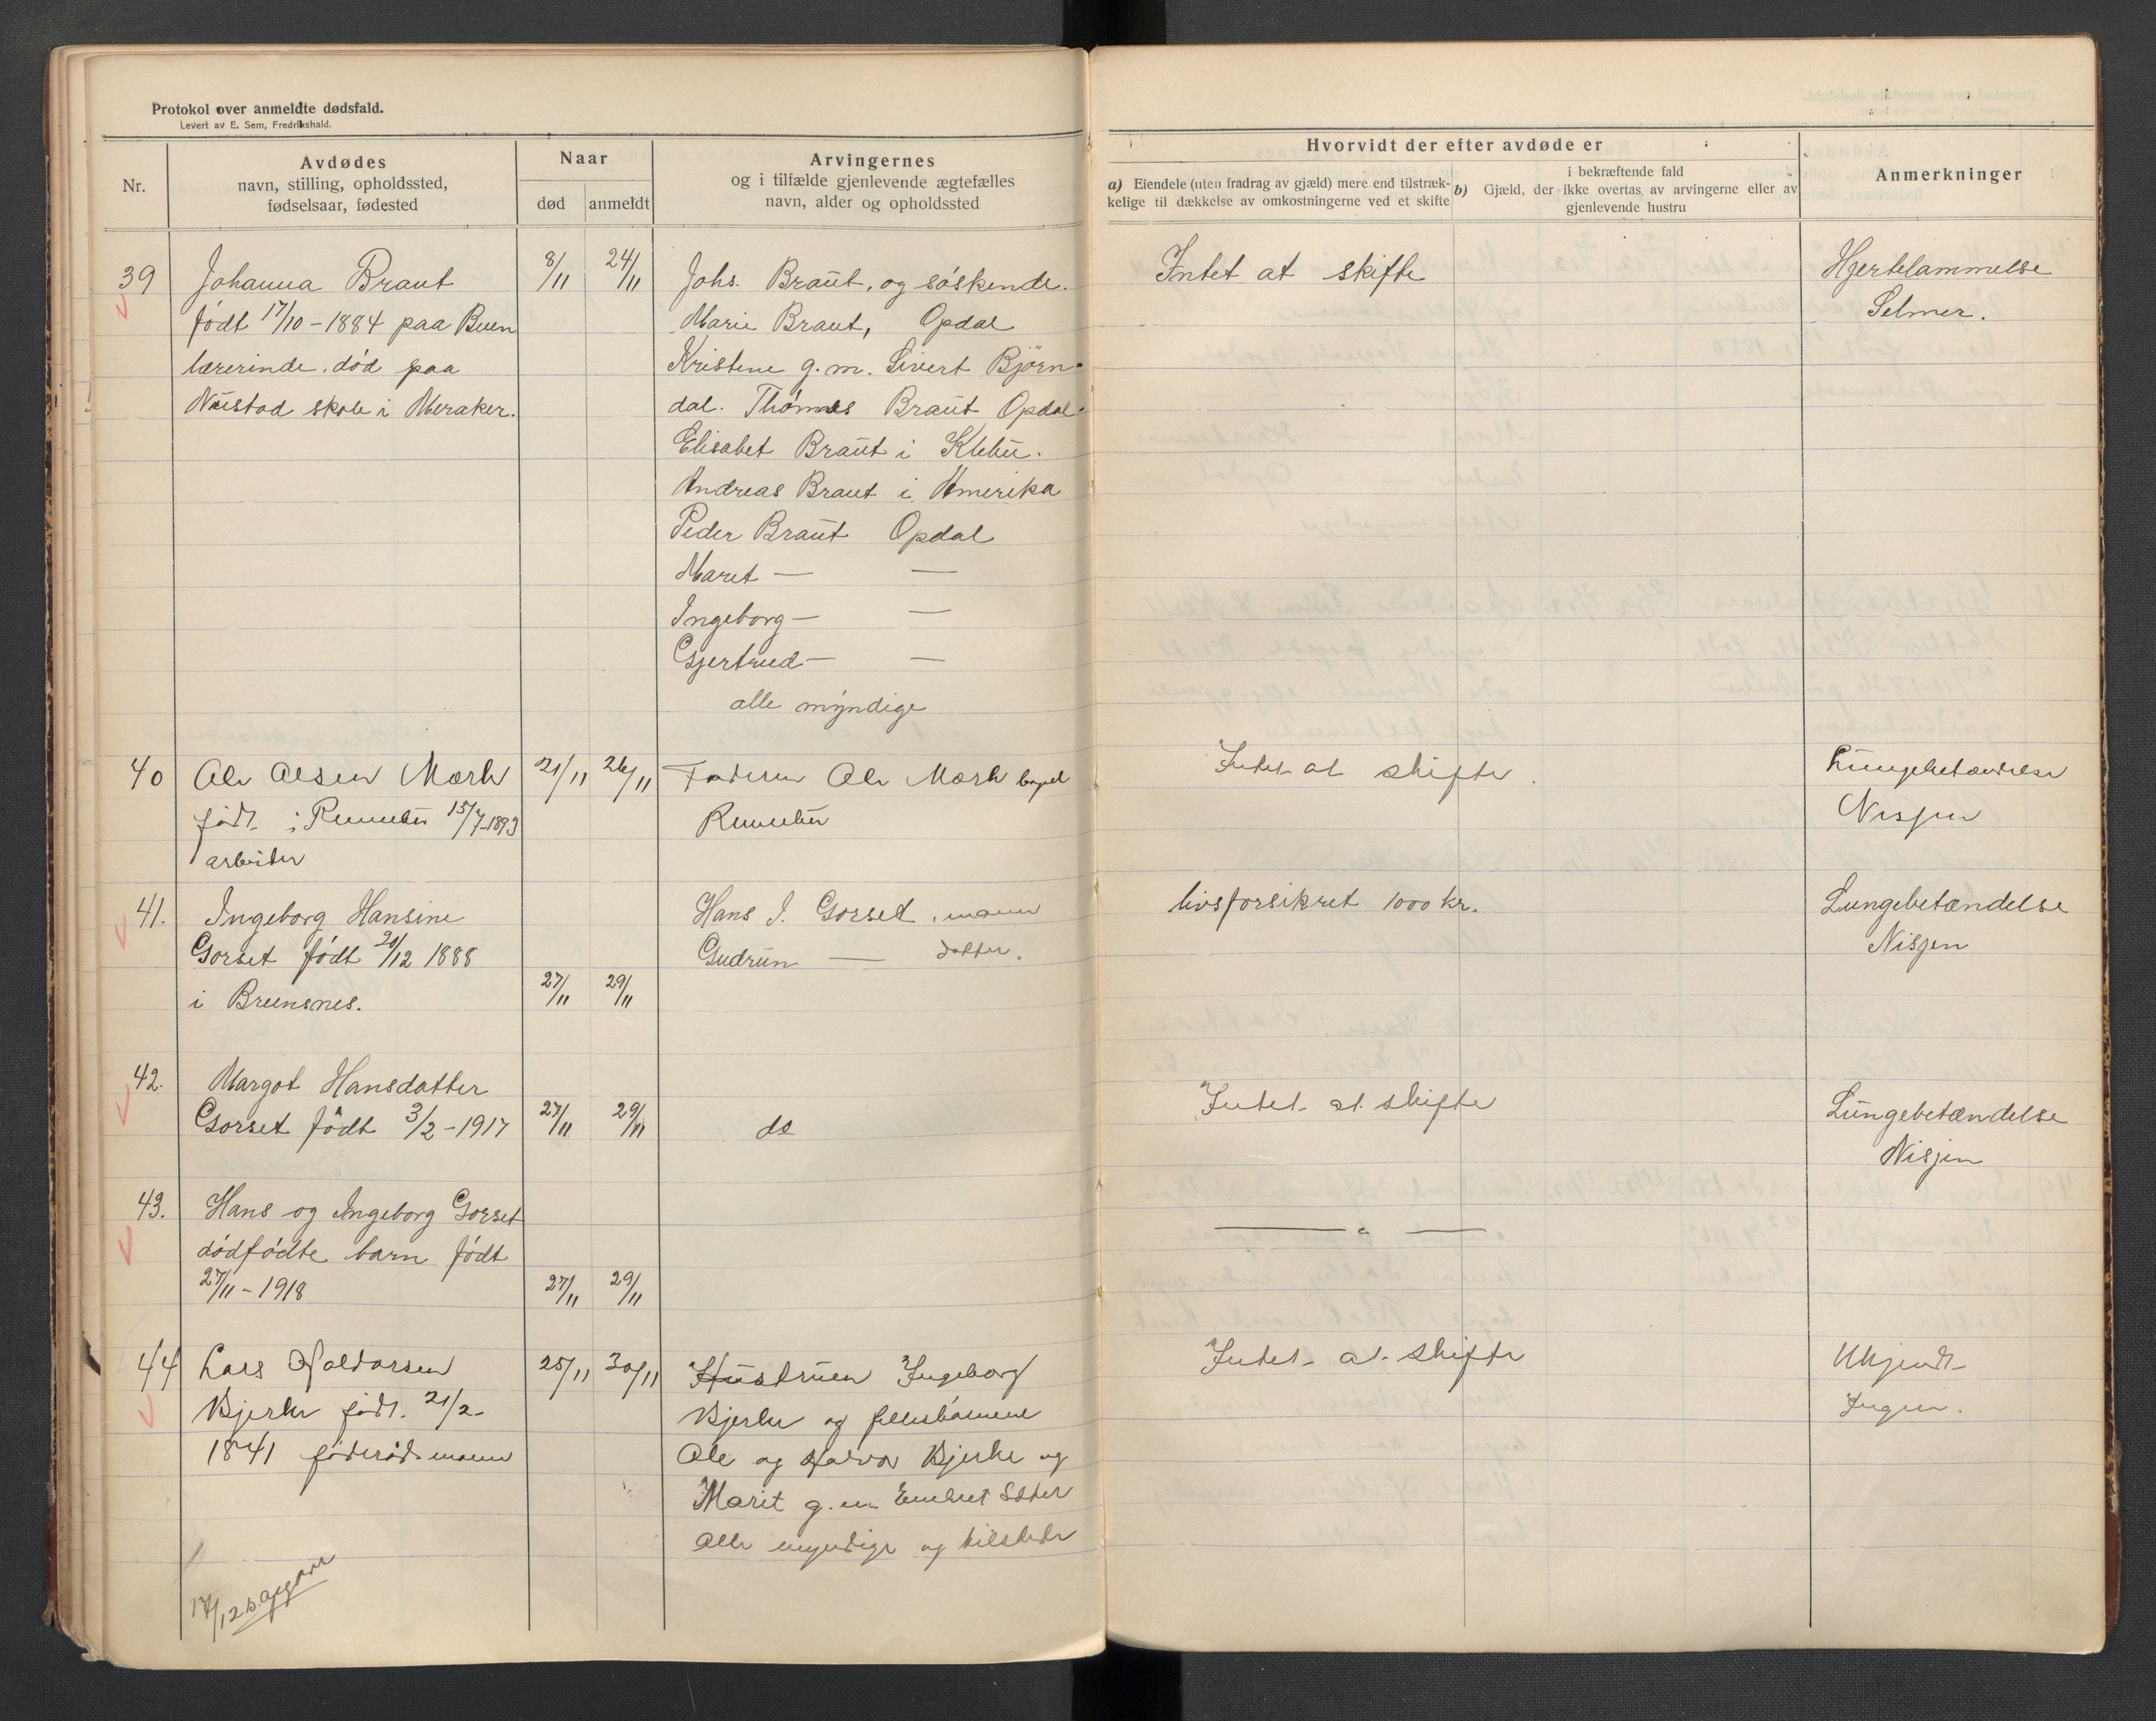 Protokol over anmeldte dødsfald.
Levert av E. Sem, Fredrikshald.
Nr.
Avdødes
navn, stilling, opholdssted,
fødselsaar, fødested
Naar
død
anmeldt
Arvingernes
og i tilfælde gjenlevende ægtefælles
navn, alder og opholdssted
Hvorvidt der efter avdøde er
a) Eiendele (uten fradrag av gjæld) mere end tilstræk-
kelige til dækkelse av omkostningerne ved et skifte
i bekræftende fald
b) Gjæld, der ikke overtas av arvingerne eller av
gjenlevende hustru
Anmerkninger
39
Johanna Braut
født 17/10 - 1884 paa
lærerinde. død paa
skole i Meraker.
8/11
24/11
Johs. Braut, og søskende.
Marie Braut, Opdal
Kristine g.m. Sivert Bjørn-
dal. Thomas Braut Opdal.
Elisabet Braut i Klebu.
Andreas Braut i Amerika
Peder Braut Opdal
Maret — —
Ingeborg — —
Gjertrud — —
alle myndige
Intet at skifte
Hjertelammelse
Selmer.
40
Ole Olsen Mærk
født i Rennebu 15/7-1893
arbeider
21/11
26/11
Faderen Ole Mærk
Rennebu
Intet at skifte.
Lungebetændelse
Nisjen
41.
Ingeborg Hansine
Gorset født 20/12 1888
i
27/11
29/11
Hans J. Gorset, mann
Gudrun — datter.
livsforsikret 1000 kr.
Lungebetændelse
Nisjen
42.
Margot Hansdatter
Gorset født 3/2 - 1917
27/11
29/11
do
Intet at skifte
Lungebetændelse
Nisjen
43.
Hans og Ingeborg Gorset
dødfødte barn født
27/11 - 1918
27/11
29/11
— " —
44
Lars Haldorsen
Bjerke født 21/2-
1841 føderådsmann
25/11
30/11
Hustruen Ingeborg
Bjerke og fellesbarnene
Ole og Halvor Bjerke og
Marit g.m. Embret Sæter
Alle myndige og tilstede
Intet at skifte
Ukjendt
Ingen.
17/12